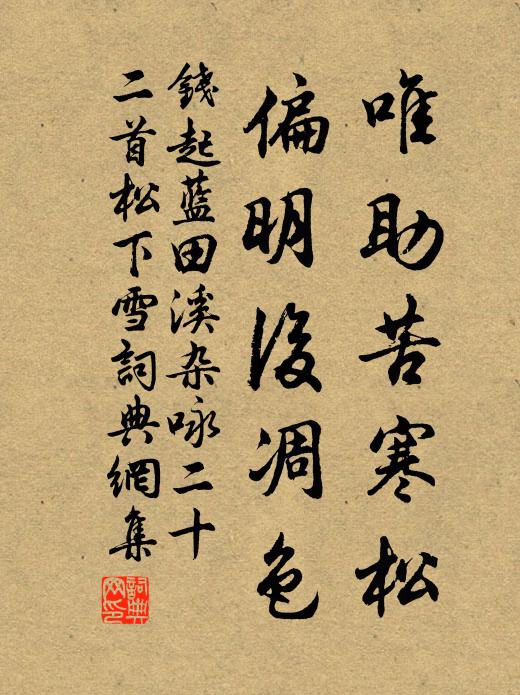 唯助苦寒松
偏明後凋色
錢起藍田溪杂咏二十
二首松下雪詞典網集
詞典网印